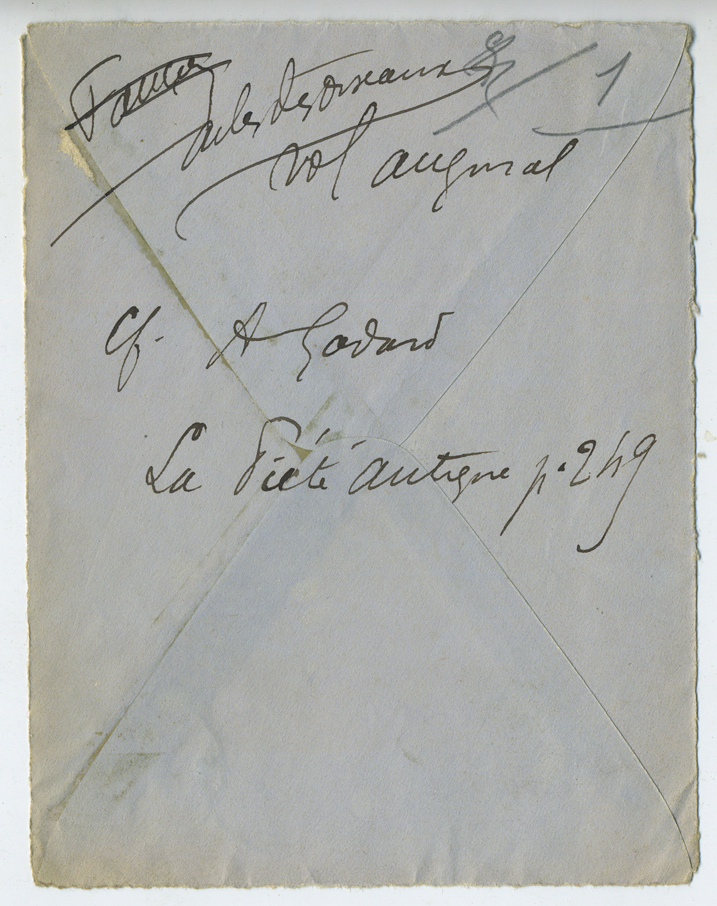 ailes des oiseaux 1
Vol augural
Cf. A Godard
La Piété antique p. 249